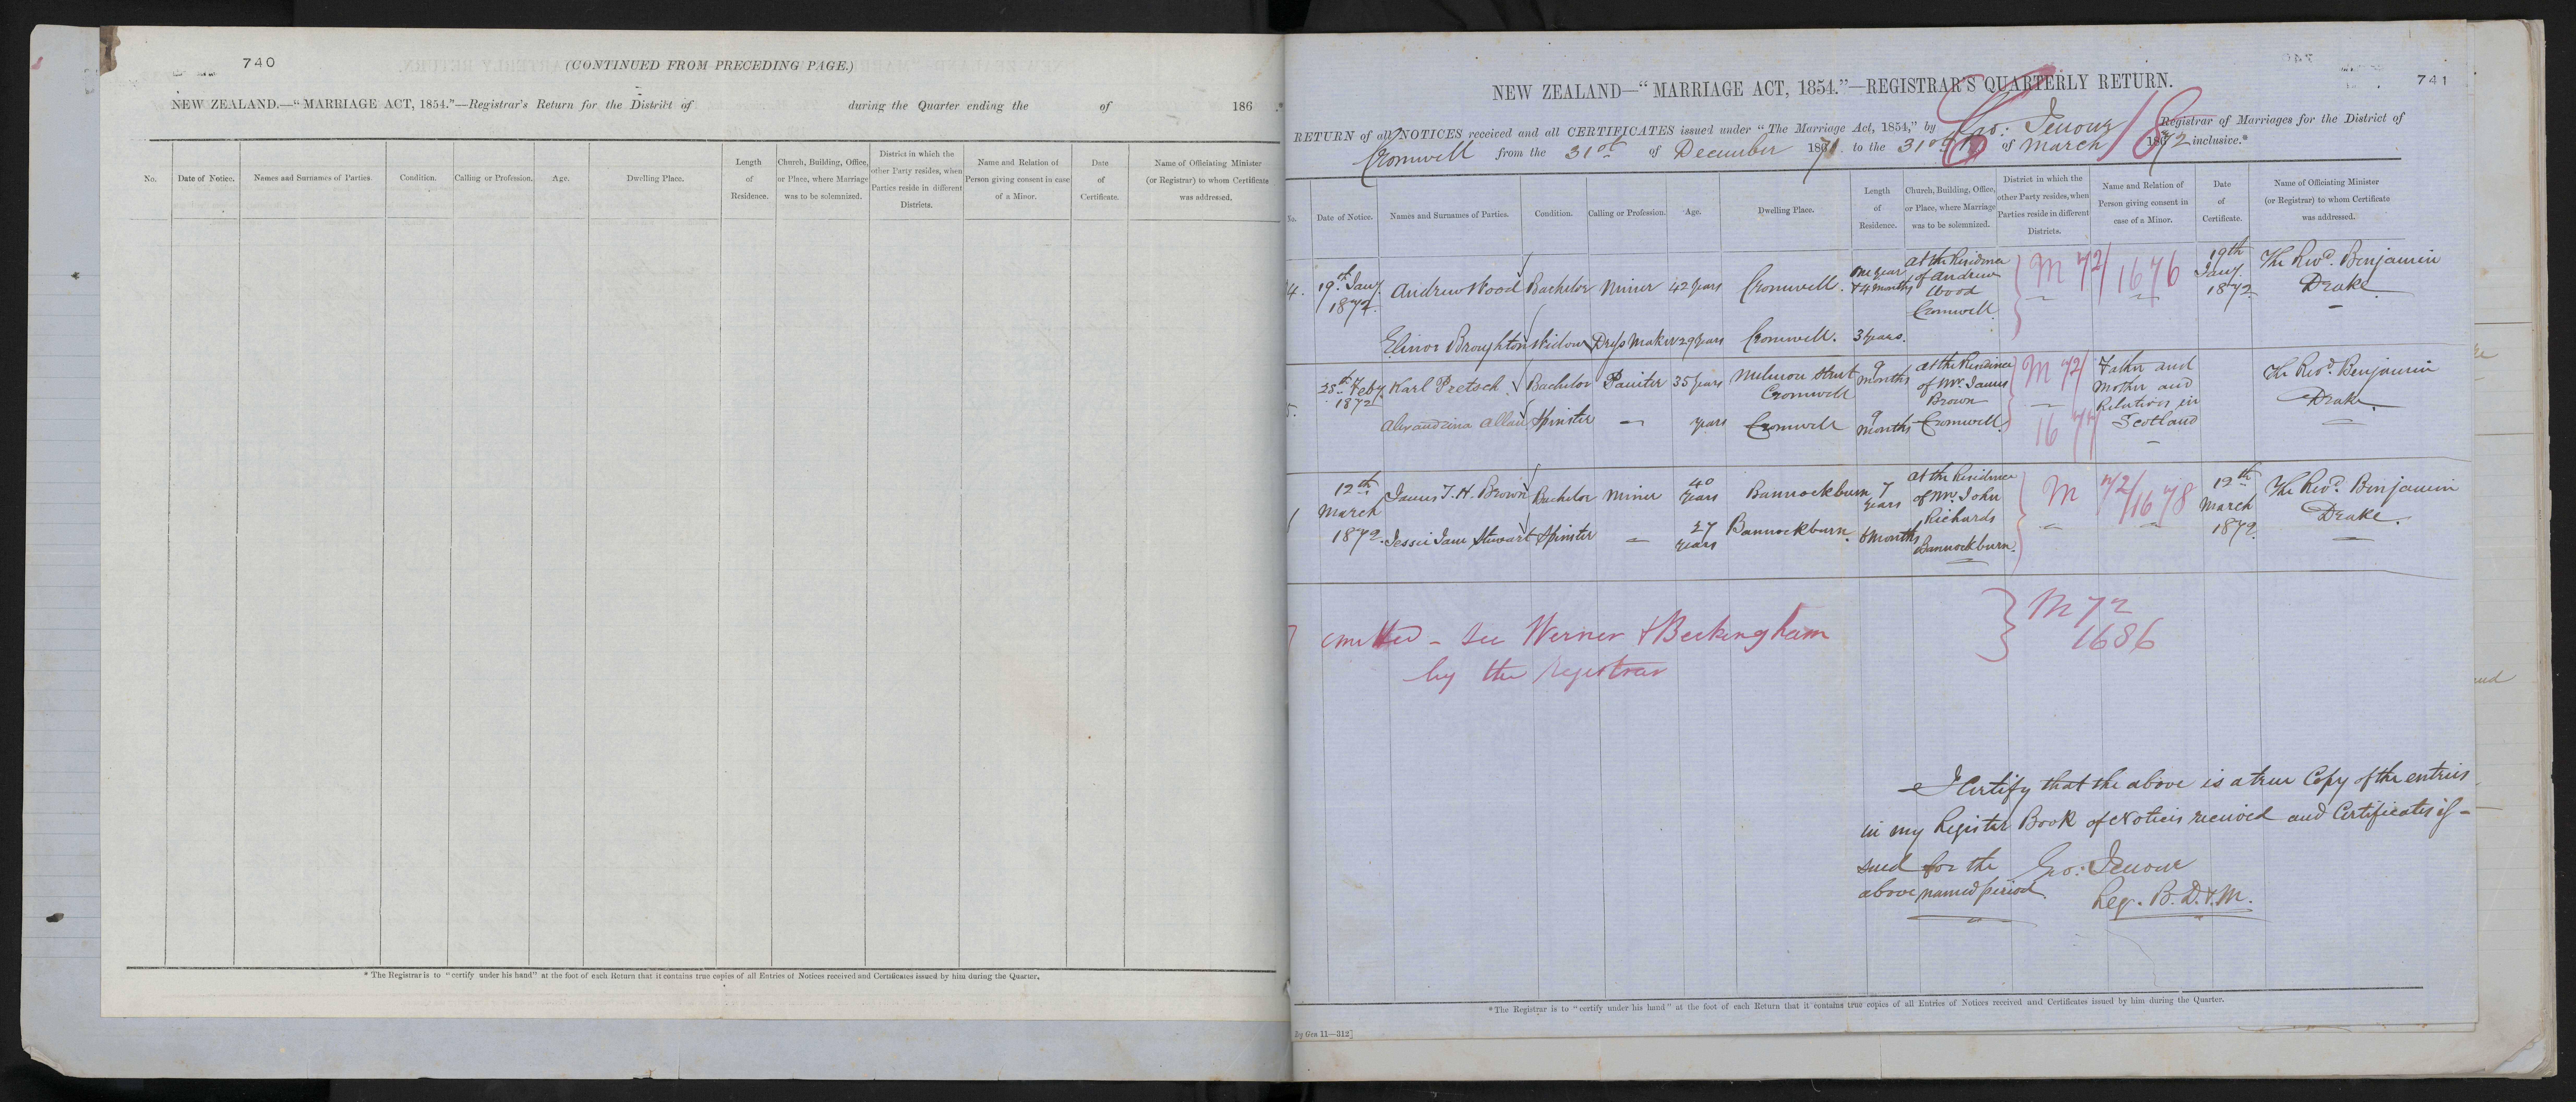 740
(CONTINUED FROM PRECEDING PAGE.)
NEW ZEALAND.—"MARRIAGE ACT, 1854."—Registrar's Return for the District of during the Quarter ending the of 186 .*
No.
Date of Notice.
Names and Surnames of Parties.
Condition.
Calling or Profession.
Age.
Dwelling Place.
Length
of
Residence.
Church, Building, Office,
or Place, where Marriage
was to be solemnized.
District in which the
other Party resides, when
Parties reside in different
Districts.
Name and Relation of
Person giving consent in case
of a Minor.
Date
of
Certificate.
Name of Officiating Minister
(or Registrar) to whom Certificate
was addressed.
* The Registrar is to "certify under his hand" at the foot of each Return that it contains true copies of all Entries of Notices received and Certificates issued by him during the Quarter.
741
NEW ZEALAND—"MARRIAGE ACT, 1854."—REGISTRAR'S QUARTERLY RETURN.
RETURN of all NOTICES received and all CERTIFICATES issued under "The Marriage Act, 1854," by Geo: Jenour Registrar of Marriages for the District of
Cromwell from the 31st of December 1871 to the 31st of March 1872 inclusive.*
No.
Date of Notice.
Names and Surnames of Parties.
Condition.
Calling or Profession.
Age.
Dwelling Place.
Length
of
Residence.
Church, Building, Office,
or Place, where Marriage
was to be solemnized.
District in which the
other Party resides, when
Parties reside in different
Districts.
Name and Relation of
Person giving consent in
case of a Minor.
Date
of
Certificate.
Name of Officiating Minister
(or Registrar) to whom Certificate
was addressed.
4.
19th Jany.
1872.
Andrew Wood
Bachelor
Miner
42 years
Cromwell.
One year
& 4 months
At the Residence
of Andrew
Wood
Cromwell.
M 72/1676
19th
Jany.
1872
The Revd. Benjamin
Drake
Elinor Broughton
Widow
Dress Maker
29 years
Cromwell.
3 years.
5.
Feby.
1872
Karl Pretsch
Bachelor
Painter
35 years
Melmore Street
Cromwell
9
months
at the Residence
of Mr. James
Brown
Cromwell.
M 72/
1677
Father and
Mother and
Relatives in
Scotland
The Revd. Benjamin
Drake
Alexandrina Allan
Spinster
years
Cromwell
9
months
12th
March
1872.
James T. H. Brown
Bachelor
Miner
40
years
Bannockburn
7
years
At the Residence
of Mr. John
Richards
Bannockburn.
M 72/1678
12th
March
1872.
The Revd. Benjamin
Drake.
Jessie Jane Stewart
Spinster
27
years
Bannockburn.
8 months
omitted - see Werner & Beckingham
by the registrar
M 72
1686
I Certify that the above is a true Copy of the entries
in my Register Book of Notices received and Certificates is-
sued for the
above named period
Geo: Jenour
Reg. B. D. & M.
* The Registrar is to "certify under his hand" at the foot of each Return that it contains true copies of all Entries of Notices received and Certificates issued by him during the Quarter.
Gen 11—312]